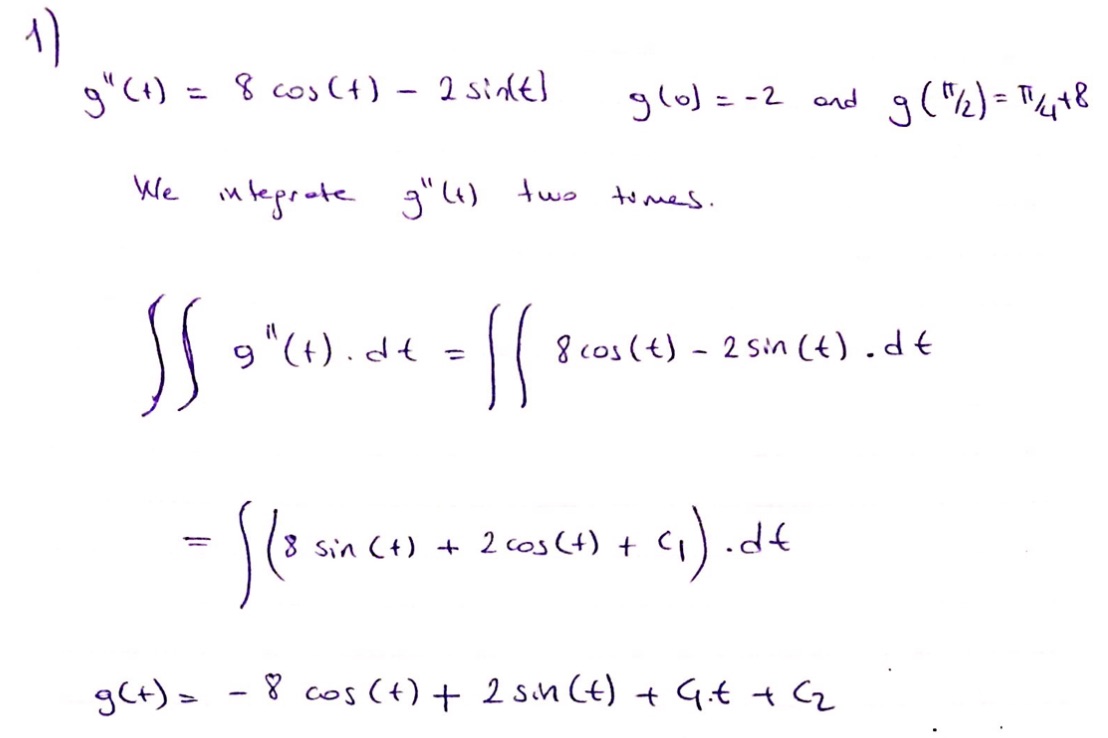 1)
g''(t) = 8 cos(t) - 2 sin(t) g(0) = -2 and g(π/2) = π/4+8
We integrate g''(t) two times.
∫∫ g''(t) . dt = ∫∫ 8 cos(t) - 2 sin(t) . dt
= ∫(8 sin(t) + 2 cos(t) + C₁) . dt
g(t) = - 8 cos(t) + 2 sin(t) + C₁.t + C₂